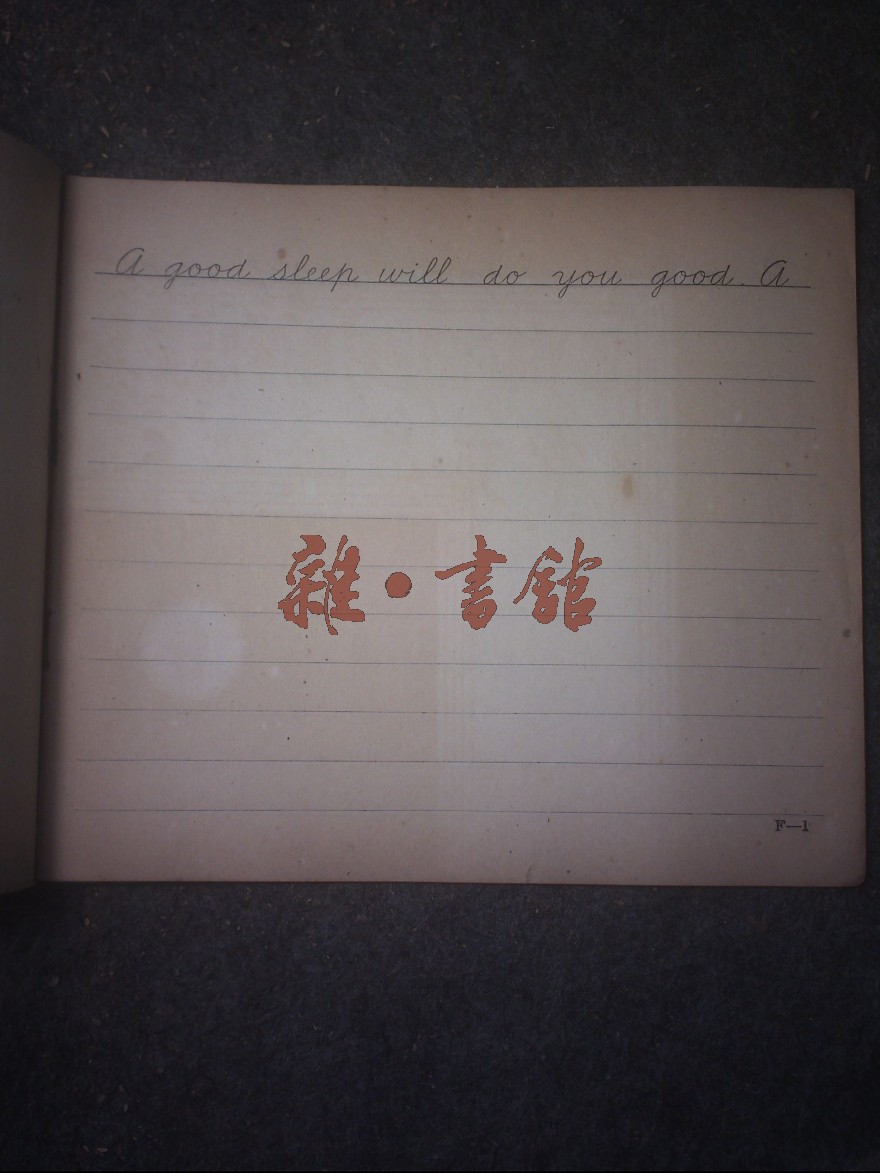 A good sleep will do you good. A
雜·書館
F—1